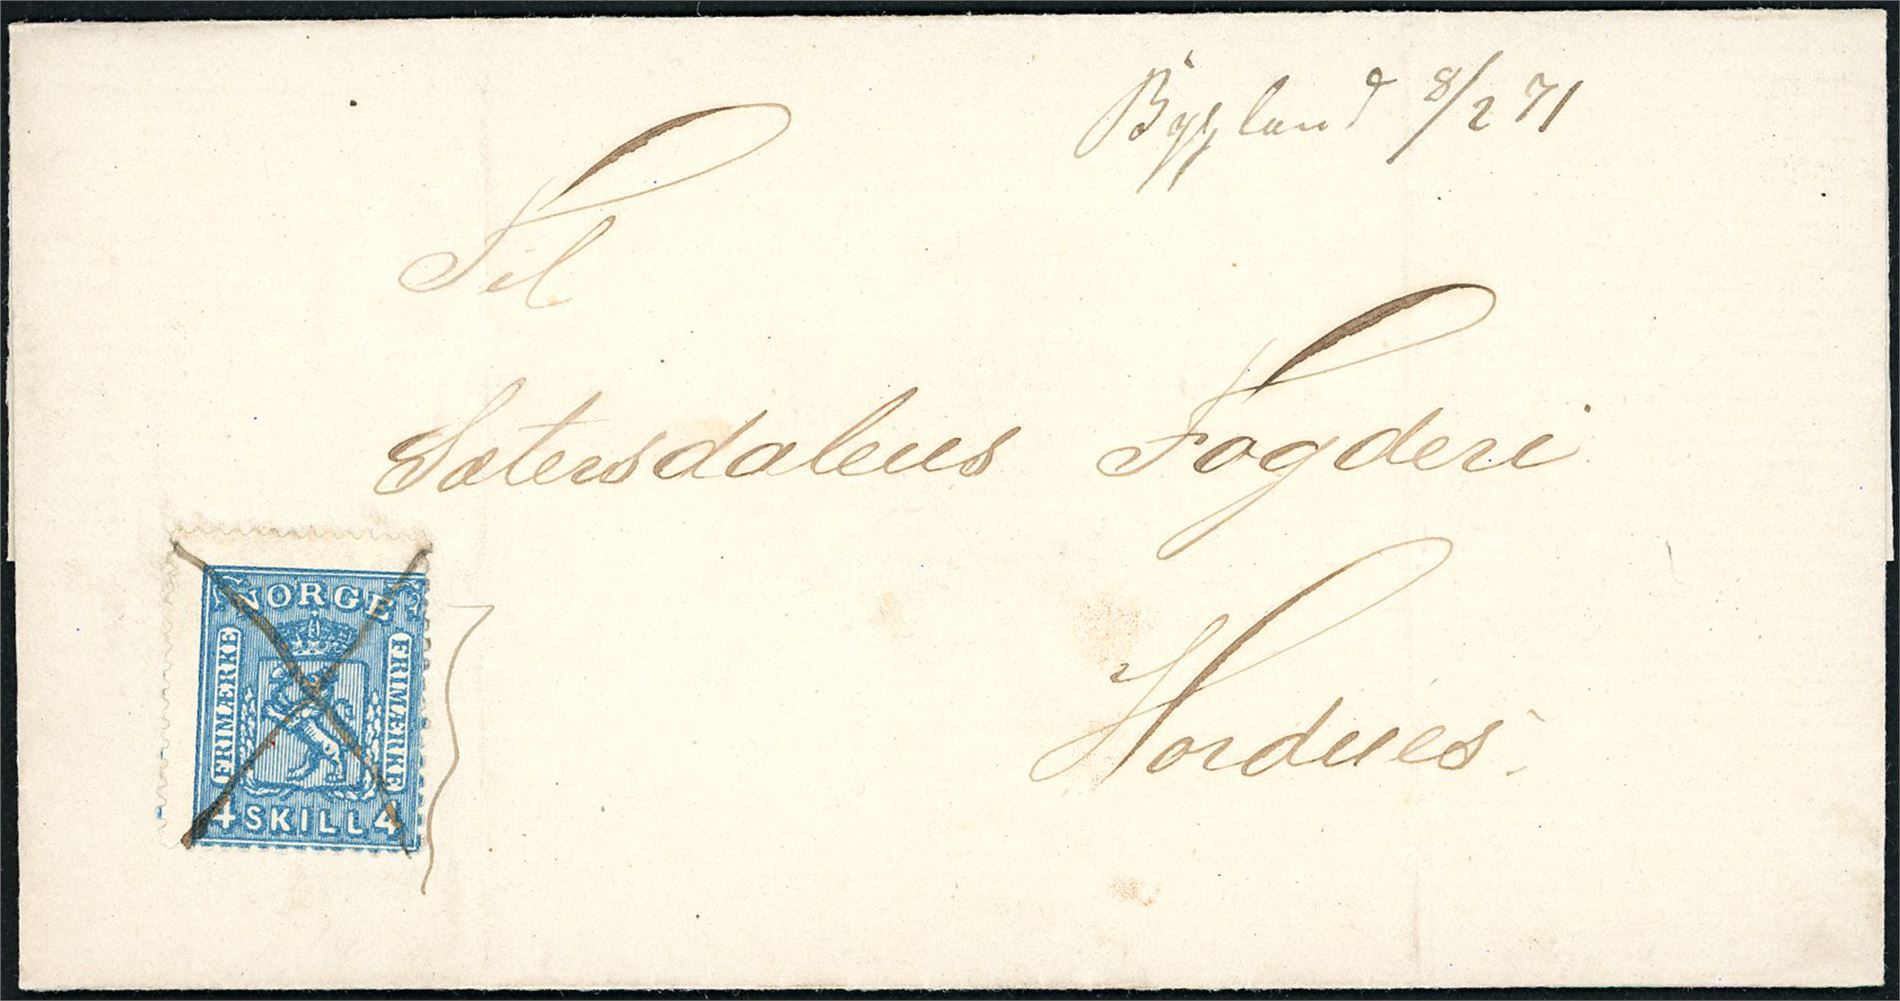 Bÿgland 8/2 71
Til
Sætersdalens Fogderi
Hordnes.
NORGE
FRIMÆRKE
FRIMÆRKE
4 SKILL 4